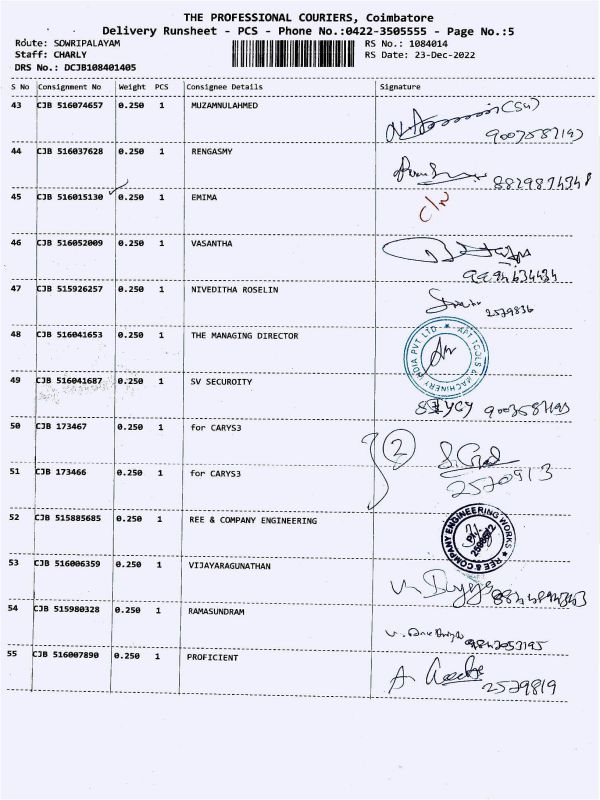 THE PROFESSIONAL COURIERS, Coimbatore
Delivery Runsheet - PCS - Phone No.:0422-3505555 - Page No.:5
Route: SOWRIPALAYAM RS No.: 1084014
Staff: CHARLY RS Date: 23-Dec-2022
DRS No.: DCJB108401405
S No Consignment No Weight PCS Consignee Details Signature
43 CJB 516074657 0.250 1 MUZAMNULAHMED
44 CJB 516037628 0.250 1 RENGASMY
45 CJB 516015130 0.250 1 EMIMA
46 CJB 516052009 0.250 1 VASANTHA
47 CJB 515926257 0.250 1 NIVEDITHA ROSELIN
2529836
48 CJB 516041653 0.250 1 THE MANAGING DIRECTOR
APT TOOLS & MACHINERY INDIA PVT LTD
49 CJB 516041687 0.250 1 SV SECUROITY
50 CJB 173467 0.250 1 for CARYS3
2
51 CJB 173466 0.250 1 for CARYS3
2570913
52 CJB 515885685 0.250 1 REE & COMPANY ENGINEERING
REE & COMPANY ENGINEERING WORKS
53 CJB 516006359 0.250 1 VIJAYARAGUNATHAN
54 CJB 515980328 0.250 1 RAMASUNDRAM
9842053195
55 CJB 516007890 0.250 1 PROFICIENT
2529819